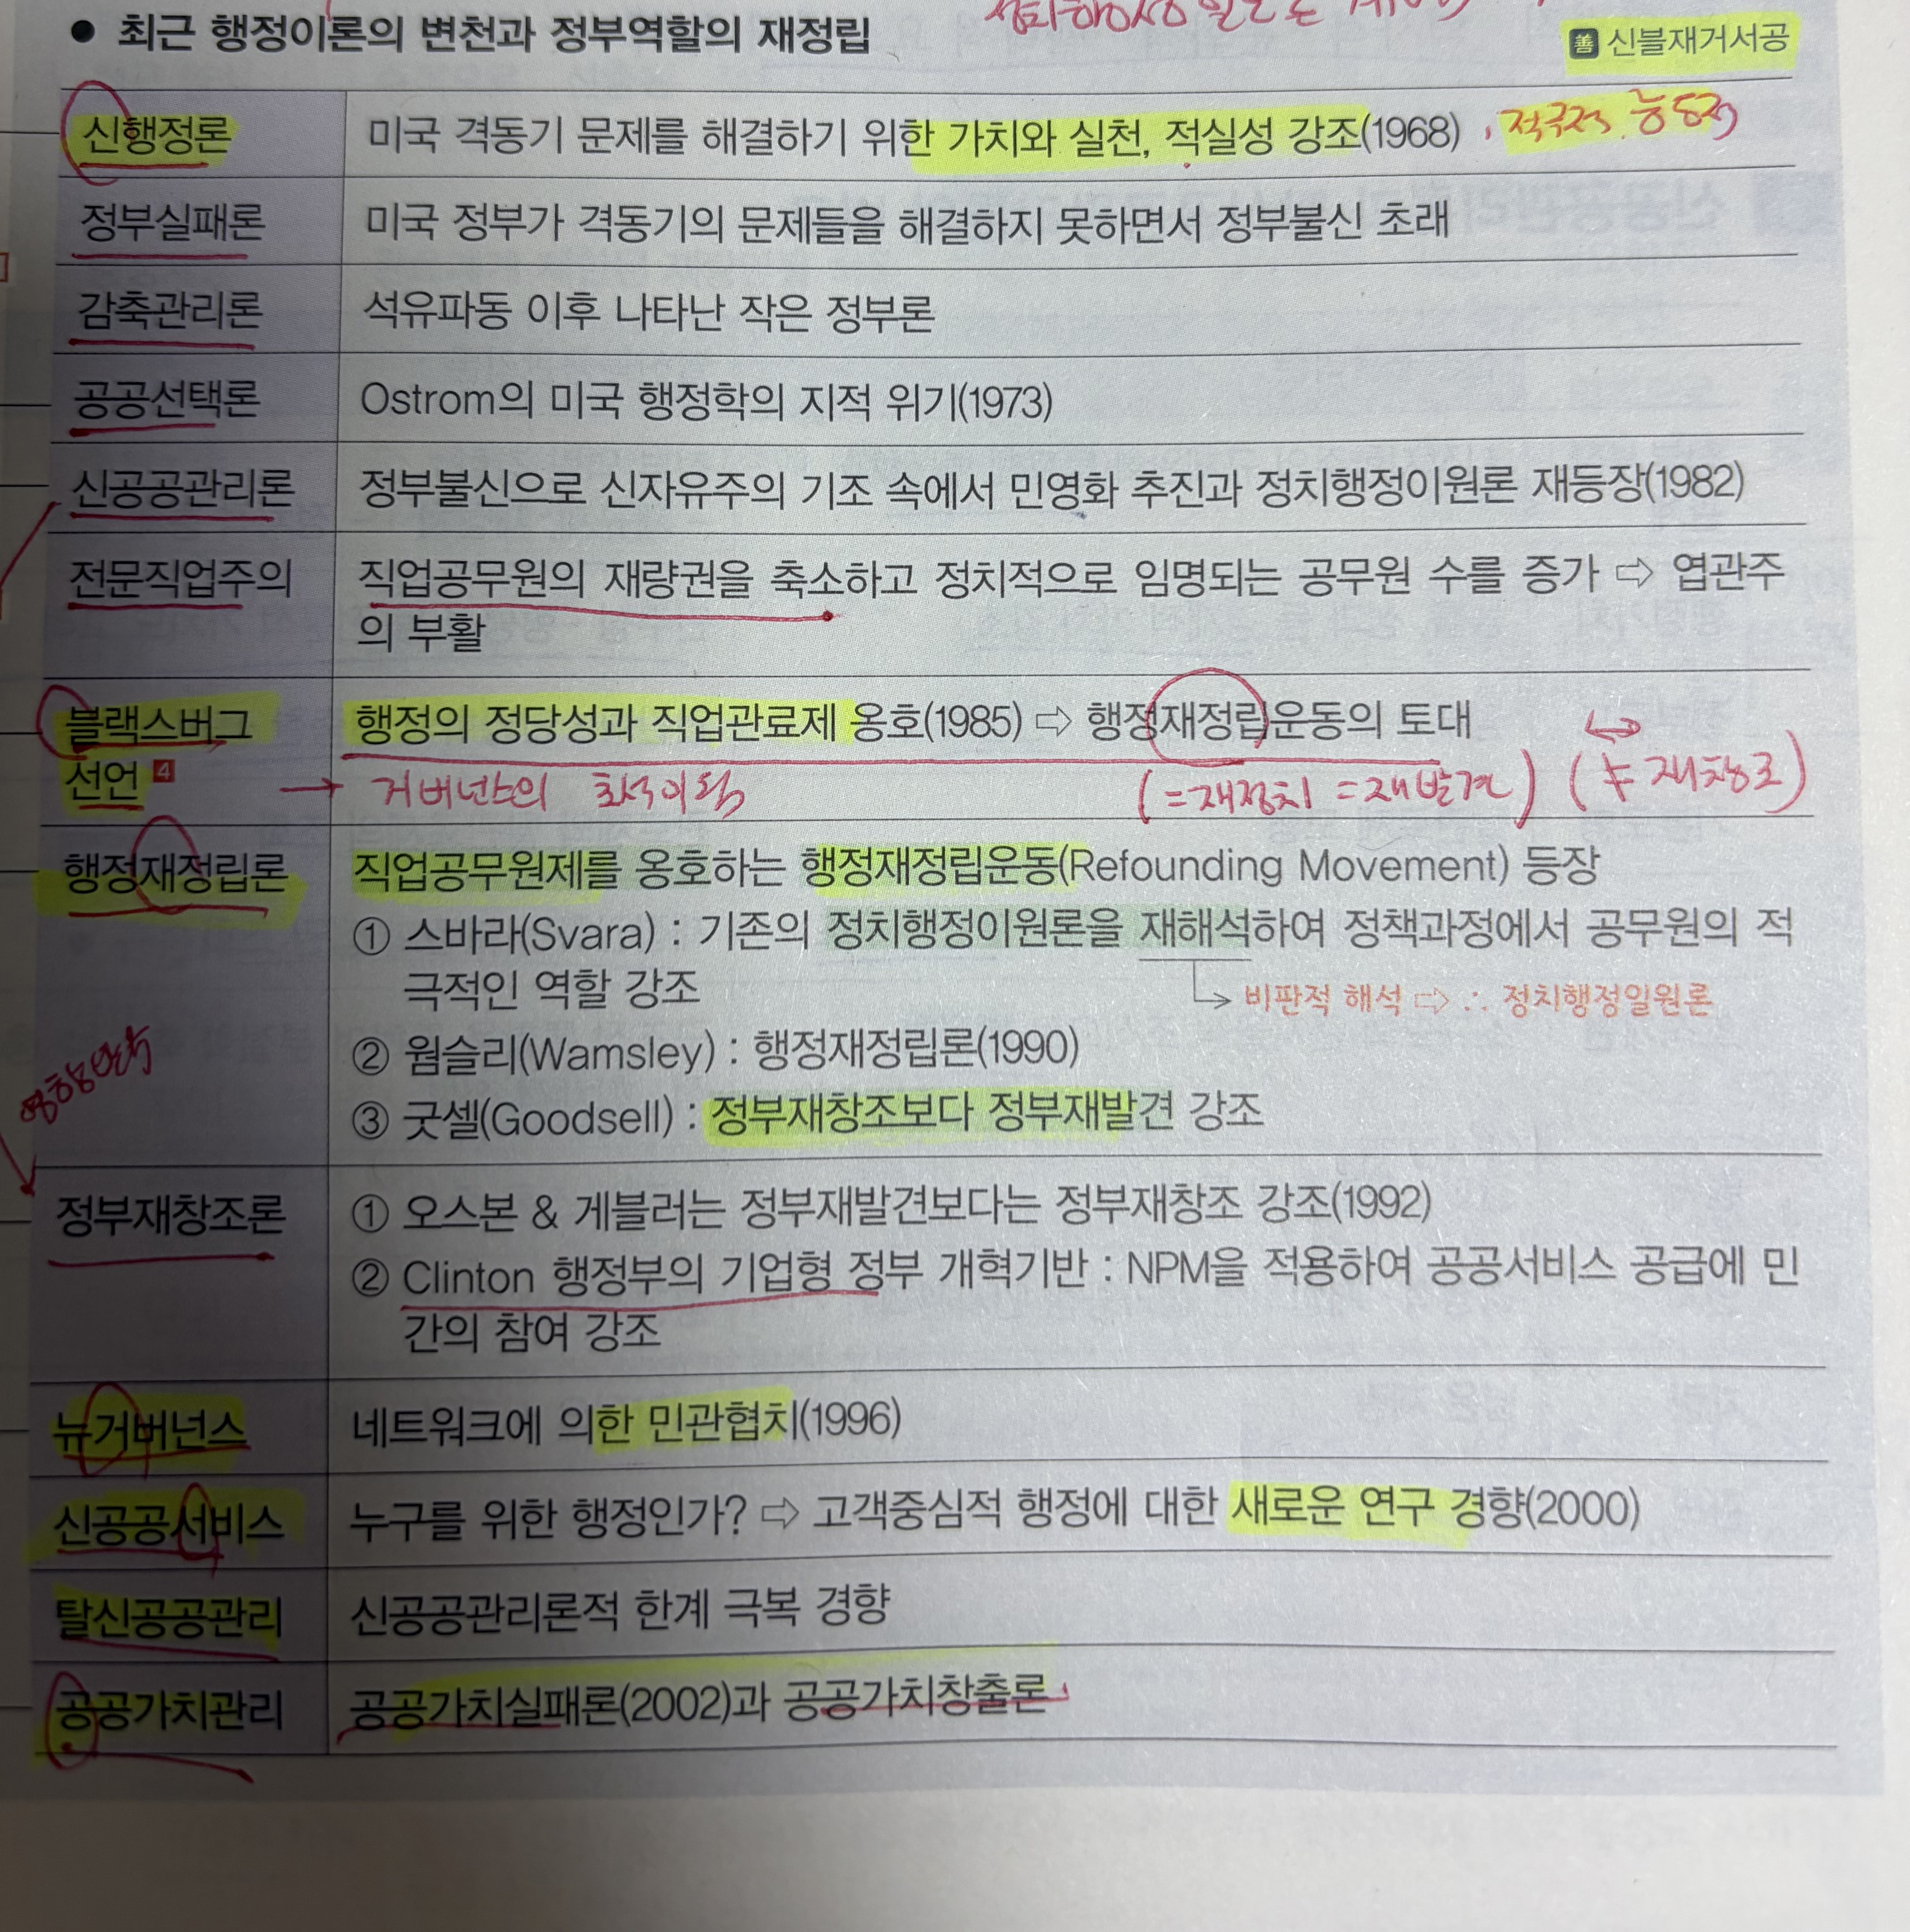 ● 최근 행정이론의 변천과 정부역할의 재정립
善 신블재거서공
신행정론 미국 격동기 문제를 해결하기 위한 가치와 실천, 적실성 강조(1968) , 적극적 능동적
정부실패론 미국 정부가 격동기의 문제들을 해결하지 못하면서 정부불신 초래
감축관리론 석유파동 이후 나타난 작은 정부론
공공선택론 Ostrom의 미국 행정학의 지적 위기(1973)
신공공관리론 정부불신으로 신자유주의 기조 속에서 민영화 추진과 정치행정이원론 재등장(1982)
전문직업주의 직업공무원의 재량권을 축소하고 정치적으로 임명되는 공무원 수를 증가 ⇨ 엽관주
의 부활
블랙스버그 행정의 정당성과 직업관료제 옹호(1985) ⇨ 행정재정립운동의 토대 ↔
선언 4 → 거버넌스의 초석이 됨 (=재정치 =재발견) (≠ 재창조)
행정재정립론 직업공무원제를 옹호하는 행정재정립운동(Refounding Movement) 등장
① 스바라(Svara) : 기존의 정치행정이원론을 재해석하여 정책과정에서 공무원의 적
극적인 역할 강조
비판적 해석 ⇨ ∴ 정치행정일원론
② 웜슬리(Wamsley) : 행정재정립론(1990)
③ 굿셀(Goodsell) : 정부재창조보다 정부재발견 강조
정부재창조론 ① 오스본 & 게블러는 정부재발견보다는 정부재창조 강조(1992)
② Clinton 행정부의 기업형 정부 개혁기반 : NPM을 적용하여 공공서비스 공급에 민
간의 참여 강조
뉴거버넌스 네트워크에 의한 민관협치(1996)
신공공서비스 누구를 위한 행정인가? ⇨ 고객중심적 행정에 대한 새로운 연구 경향(2000)
탈신공공관리 신공공관리론적 한계 극복 경향
공공가치관리 공공가치실패론(2002)과 공공가치창출론